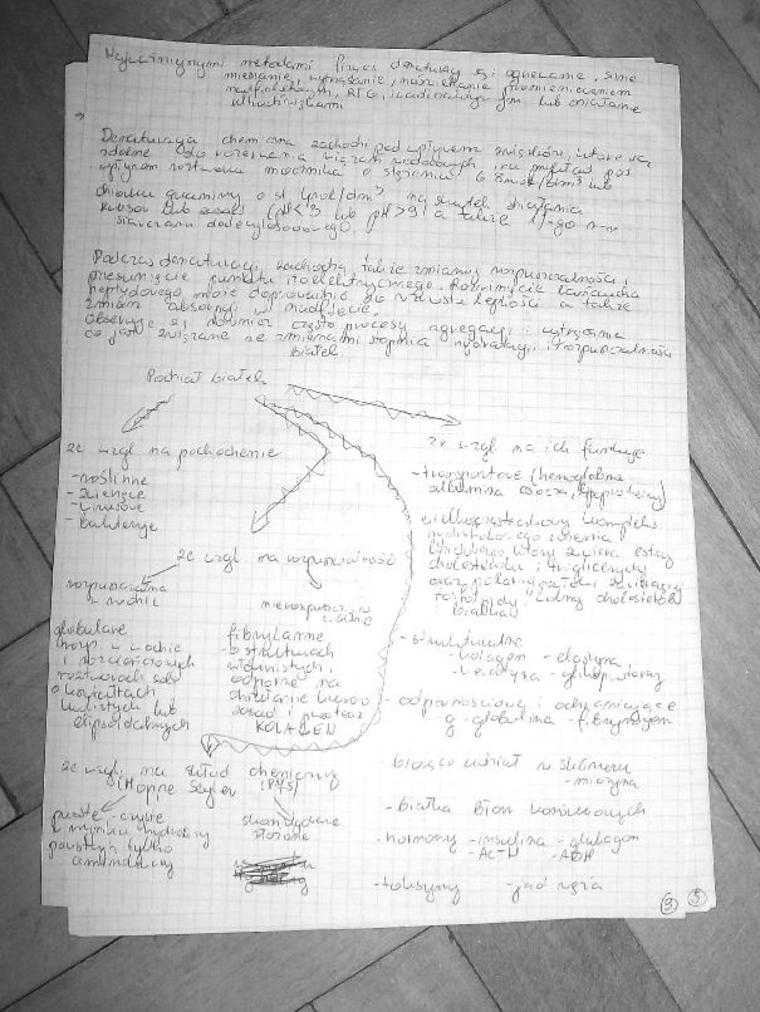 Najczynniejszymi metodami fizycz denaturacji są ogrzewanie, silne
mieszanie, wytrząsanie, naświetlanie promieniowaniem
nadfioletowym, RTG, lub działanie
ultradźwiękami
Denaturacja chemiczna zachodzi pod wpływem związków, które są
zdolne do rozerwania wiązań wodorowych, na przykład pod
wpływem roztworu mocznika o stężeniu 6 8mol/dm³ lub
chlorku guanidyny o st 4mol/dm³ na skutek działania
kwasów lub zasad (pH<3 lub pH>9) a także 1%-go r-ru
siarczanu dodecylosodowego.
Podczas denaturacji zachodzą także zmiany rozpuszczalności,
przesunięcie punktu izoelektrycznego. Rozwinięcie łańcucha
peptydowego może doprowadzić do wzrostu lepkości a także
zmian absorpcji w nadfiolecie.
Obserwuje się również często procesy agregacji i wytrącania
co jest związane ze zmianami stopnia hydratacji i rozpuszczalności
białek.
Podział białek
ze wzgl na pochodzenie
- roślinne
- zwierzęce
- wirusowe
- bakteryjne
ze wzgl. na rozpuszczalność
rozpuszczalne
w wodzie
globularne
(rozp. w wodzie
i rozcieńczonych
roztworach soli
o kształtach
kulistych lub
elipsoidalnych
nierozpuszcz.
w wodzie
fibrylarne
- o strukturach
włóknistych,
odporne na
działanie kwasów
zasad i proteaz
KOLAGEN
ze wzgl. na skład chemiczny
(Hoppe Seyler 1875)
proste, czyste
w wyniku hydrolizy
powstają tylko
aminokwasy
złożone
ze wzgl. na ich funkcje
- transportowe (hemoglobina
albumina osocza, lipoproteiny)
wielkocząsteczkowy kompleks
lipidowe, który zawiera estry
cholesterolu i triglicerydy
oraz polarną
fosfolipidy wolny cholesterol
białka
- strukturalne
- kolagen - elastyna,
- keratyna - glikoproteiny
- odpornościowe i ochraniające
g-globulina - fibrynogen
- biorące udział w skurczu
- miozyna
- białka błon komórkowych
- hormony - insulina - glukagon
- ACTH - ADH
- toksyny - jad węża
3 5